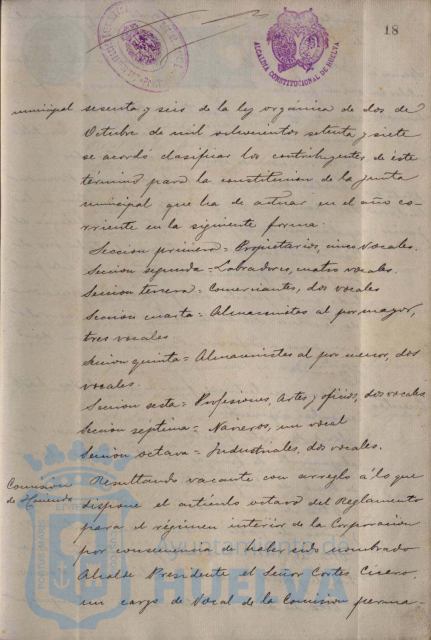 18
ALCALDIA CONSTITUCIONAL DE HUELVA
municipal sesenta y seis de la ley orgánica de dos de
Octubre de mil ochocientos setenta y siete
se acordó clasificar los contribuyentes de éste
término para la constitucion de la junta
municipal que ha de actuar en el año co-
rriente en la siguiente forma:
Seccion primera = Propietarios, cinco vocales.
Seccion segunda = Labradores, cuatro vocales.
Seccion tercera = Comerciantes, dos vocales
Seccion cuarta = Almacenistas al por mayor,
tres vocales
Seccion quinta = Almacenistas al por menor, dos
vocales.
Seccion sesta = Profesiones, Artes y oficios, dos vocales
Seccion septima = Navieros, un vocal
Seccion octava = Industriales, dos vocales.
Comisión
de Hacienda
Resultando vacante con arreglo á lo que
dispone el artículo octavo del Reglamento
para el régimen interior de la Corporacion
por consecuencia de haber sido nombrado
Alcalde Presidente el Señor Cortes Cicero,
un cargo de Vocal de la Comision perma-
Ayuntamiento de
HUELVA